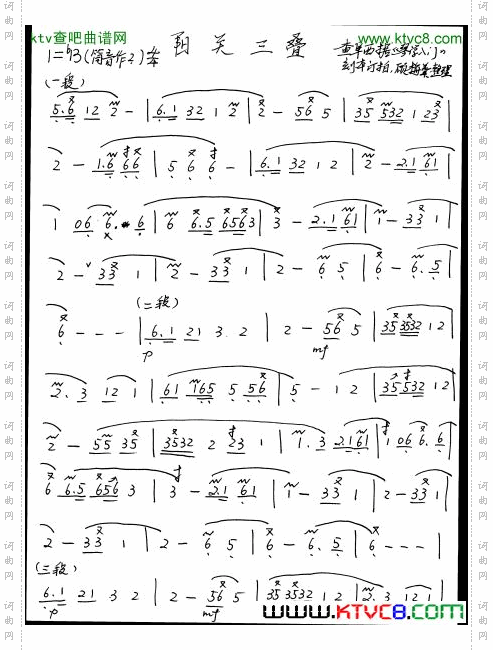 ktv查吧曲谱网
www.ktyc8.com
阳关三叠
1=♭B(筒音作2)
(一段)
5.6 12 2 - | 6.1 32 1 2 | 2 - 56 5 | 35 532 1 23 |
2 - 1.6 66 | 5 6 6 - | 6.1 32 1 2 | 2 - 2.1 61 |
1 06 6. 6 | 6 6.5 6563 | 3 - 2.1 61 | 1 - 33 1 |
2 - 33 1 | 2 - 33 1 | 2 - 6 5 | 6 - 6.5 |
(二段)
6 - - - | 6.1 21 3. 2 | 2 - 56 5 | 35 3532 12 |
p mf
2. 3 12 1 | 61 165 5 56 | 5 - 1 2 | 35 532 12 |
2 - 55 35 | 3532 2 23 1 | 1. 3 2.1 61 | 1 06 6. 6 |
6 6.5 656 3 | 3 - 2.1 61 | 1 - 33 1 | 2 - 33 1 |
2 - 33 1 | 2 - 6 5 | 6 - 6. 5 | 6 - - - |
(三段)
6.1 21 3 2 | 2 - 56 5 | 35 3532 12 | 2. 3 12 1 |
p mf
www.KTVC8.com
词曲网